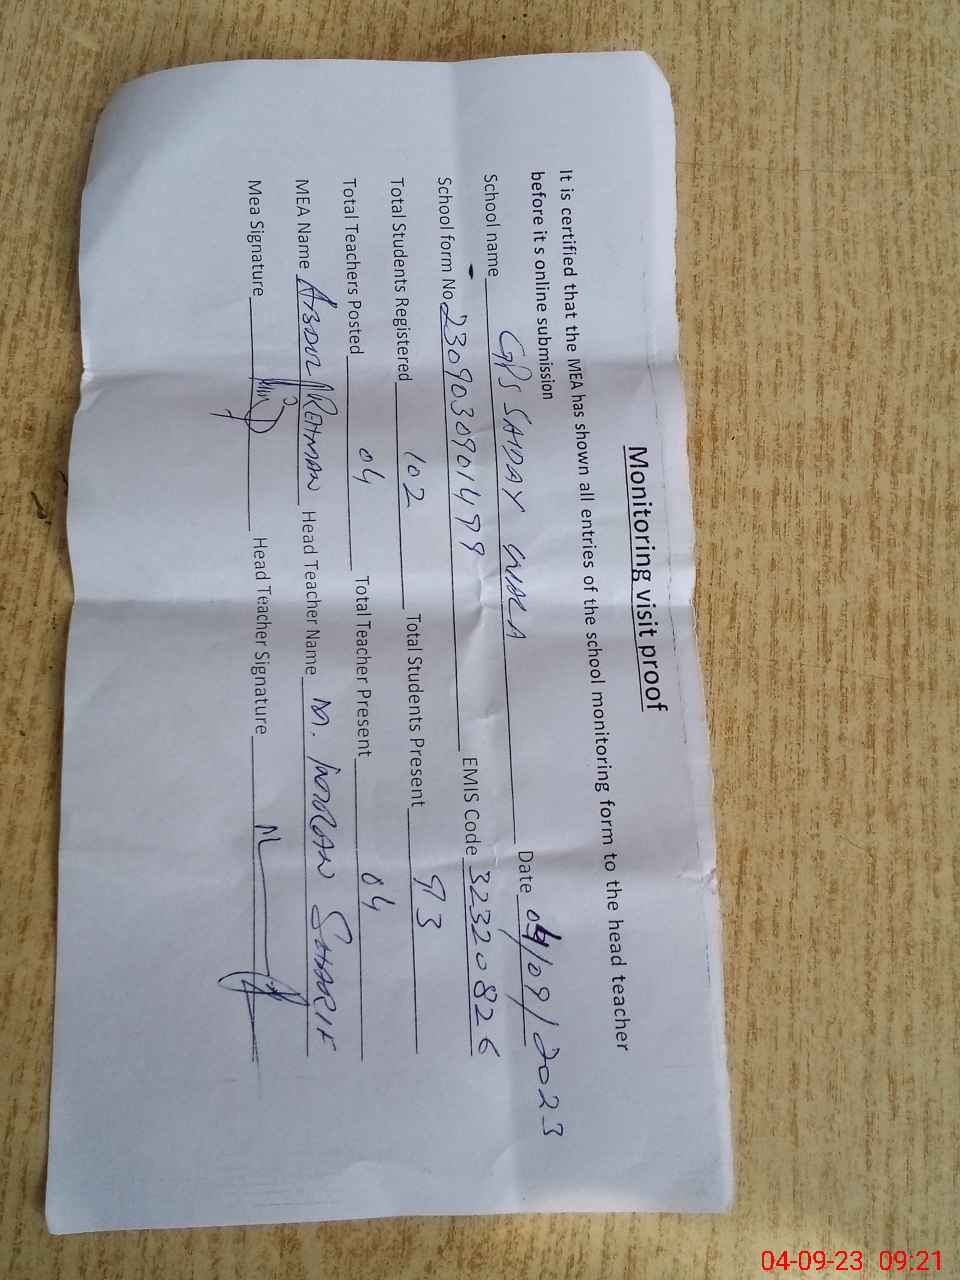 Monitoring visit proof
It is certified that the MEA has shown all entries of the school monitoring form to the head teacher
before it s online submission
School name GPS SAIDAY WALA Date 04/09/2023
School form No 2309030901499 EMIS Code 32320826
Total Students Registered 102 Total Students Present 93
Total Teachers Posted 04 Total Teacher Present 04
MEA Name ABDUL REHMAN Head Teacher Name M. IMRAN SHARIF
Mea Signature Head Teacher Signature
04-09-23 09:21